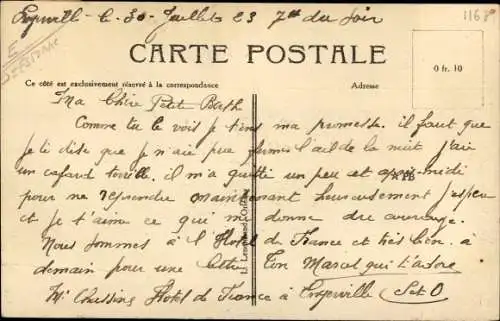 Angerville le 30 Juillet 23 7h du soir
1168
CARTE POSTALE
Ce côté est exclusivement réservé à la correspondance
Adresse
0 fr. 10
Ma Chère Petite
Comme tu le vois je tiens ma promesse. il faut que
je te dise que je n'aie pue fermer l'œil de la nuit j'ai
un cafard terrible. il m'a quitté un peu cet après-midi
pour me reprendre maintenant heureusement j'espère
et je t'aime ce qui me donne du courage.
Nous sommes à l'Hotel de France et très bien. à
demain pour une lettre Ton Marcel qui t'adore
Mr Hotel de France à Angerville (S et O)